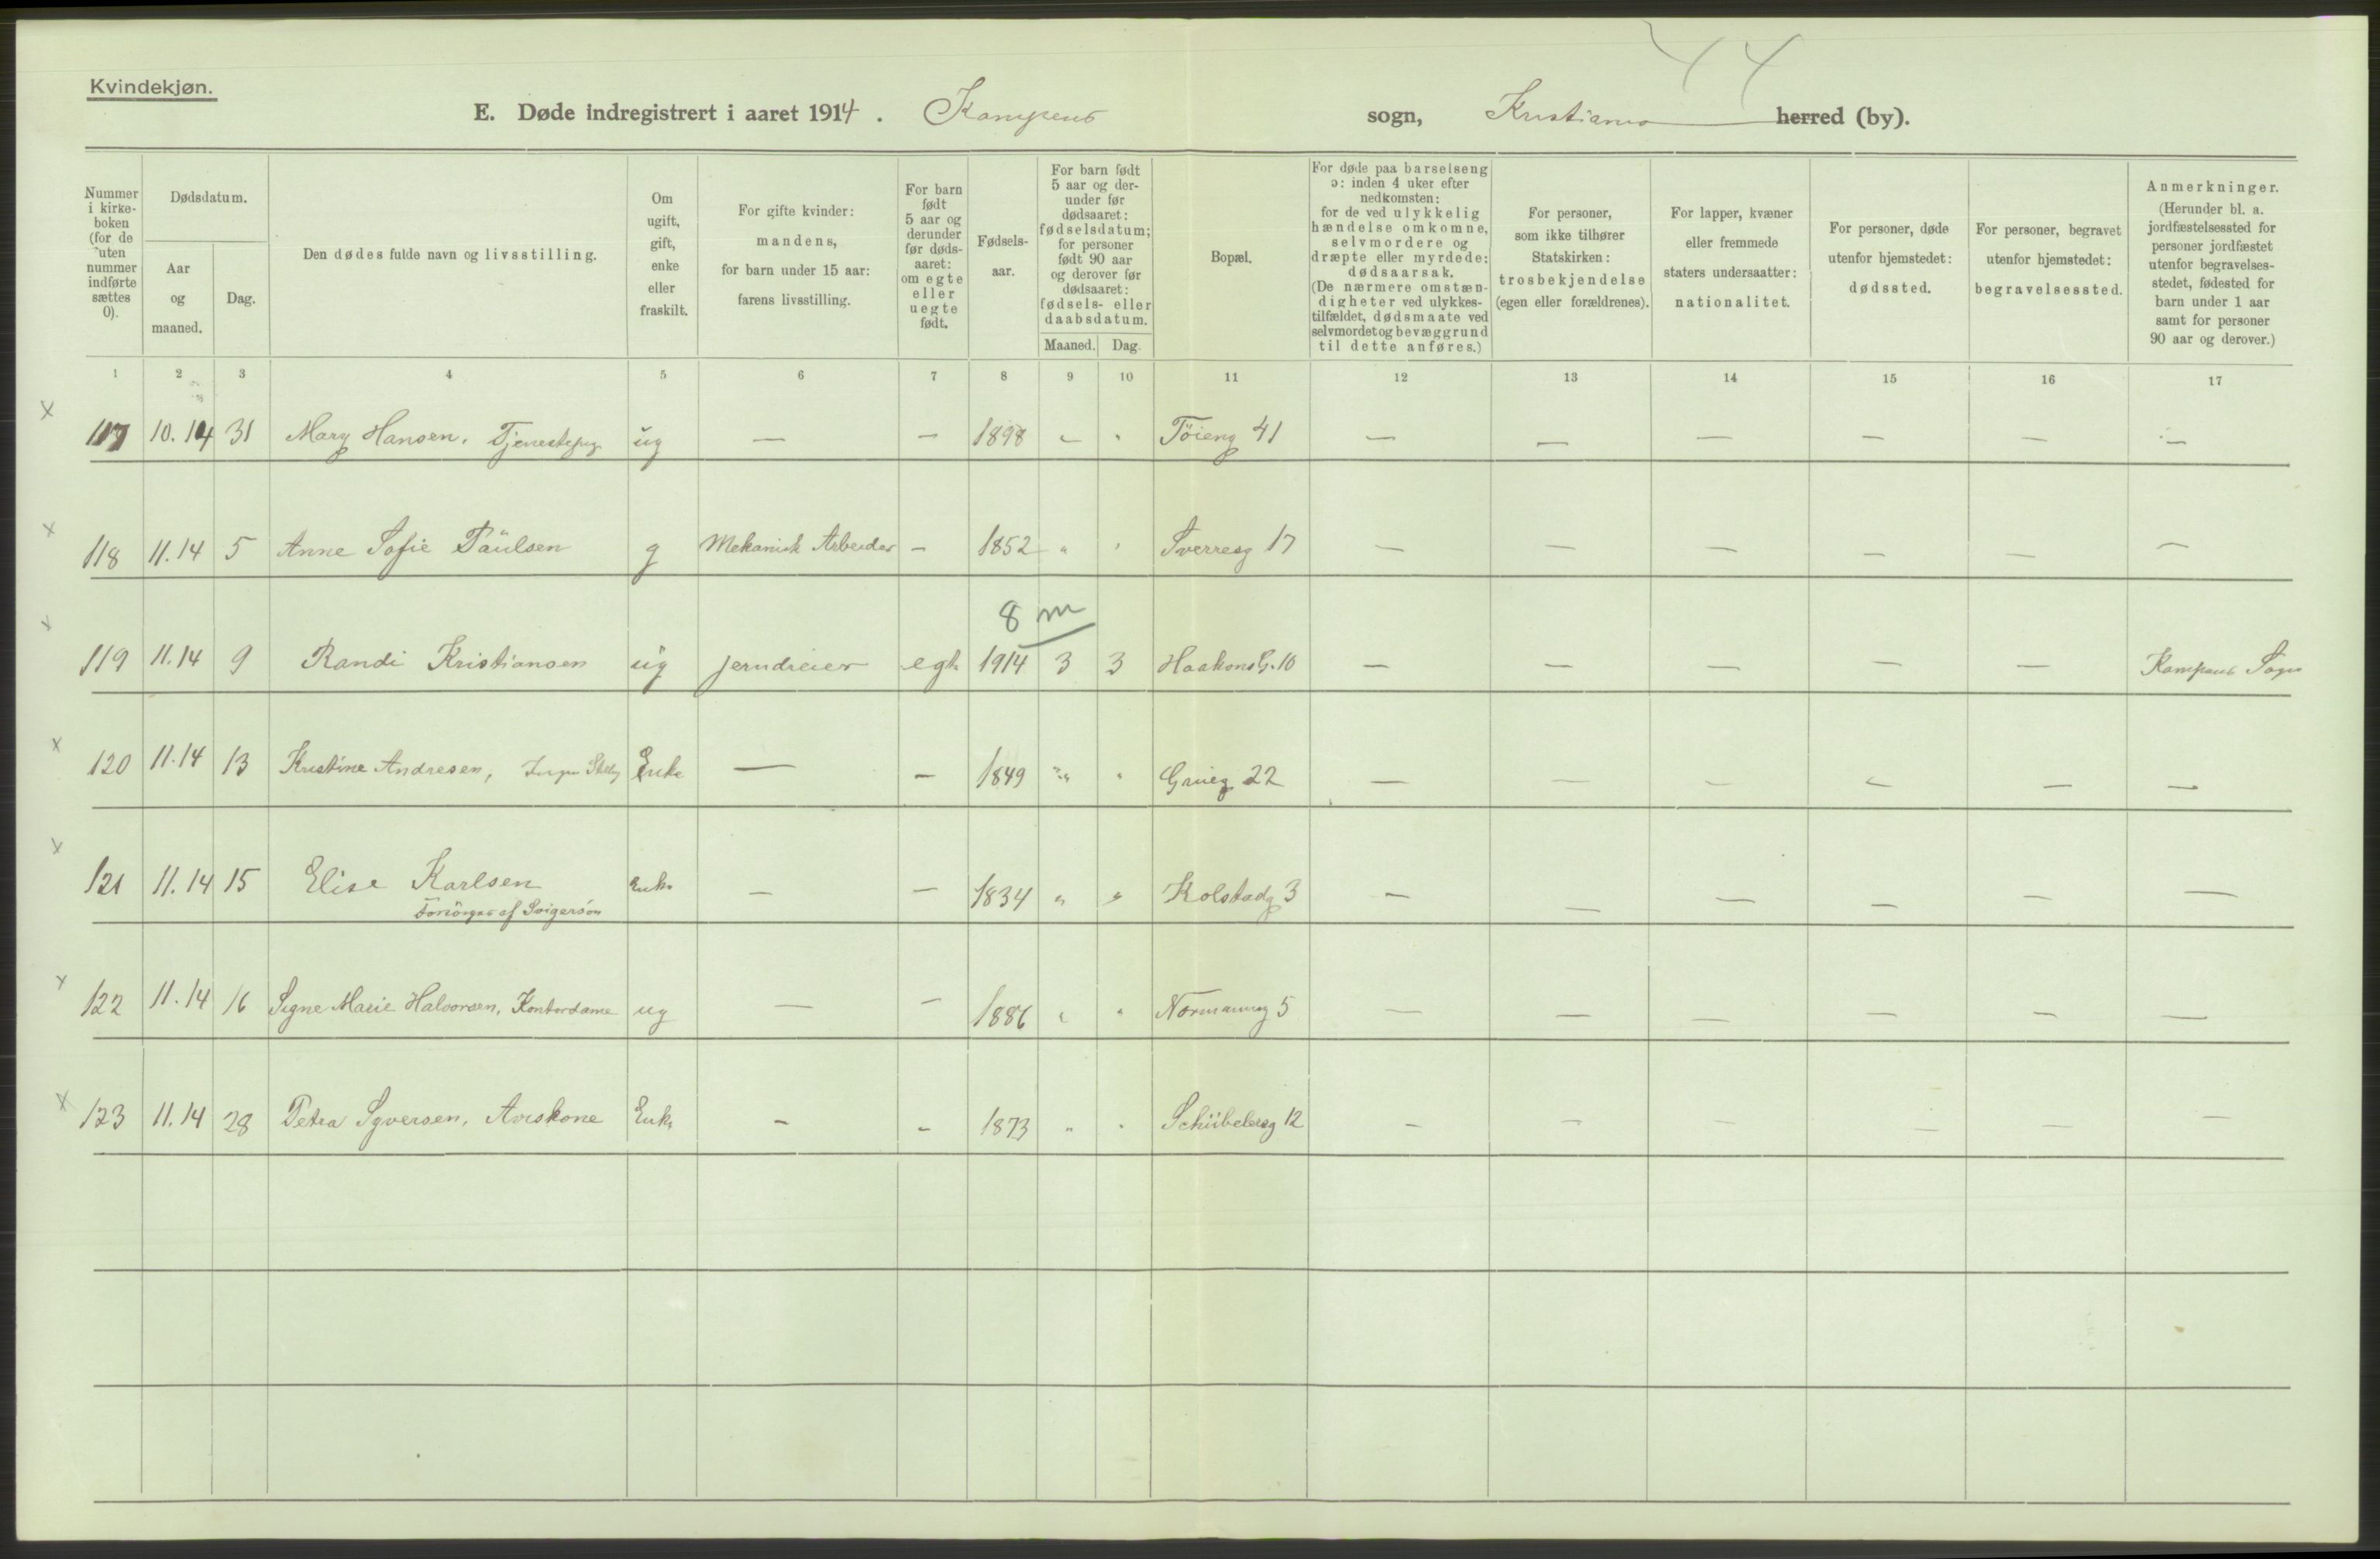 44
Kvindekjøn.
E. Døde indregistrert i aaret 1914. Kampens sogn, Kristiania herred (by).
Nummer i kirkeboken (for de uten nummer indførte sættes 0).
Dødsdatum.
Aar og maaned.
Dag.
Den dødes fulde navn og livsstilling.
Om ugift, gift, enke eller fraskilt.
For gifte kvinder: mandens, for barn under 15 aar: farens livsstilling.
For barn født 5 aar og derunder før dødsaaret: om egte eller uegte født.
Fødselsaar.
For barn født 5 aar og derunder før dødsaaret: fødselsdatum; for personer født 90 aar og derover før dødsaaret: fødsels- eller daabsdatum.
Maaned. Dag.
Bopæl.
For døde paa barselseng ɔ: inden 4 uker efter nedkomsten: for de ved ulykkelig hændelse omkomne, selvmordere og dræpte eller myrdede: dødsaarsak. (De nærmere omstændigheter ved ulykkestilfældet, dødsmaate ved selvmordet og bevæggrund til dette anføres.)
For personer, som ikke tilhører Statskirken: trosbekjendelse (egen eller forældrenes).
For lapper, kvæner eller fremmede staters undersaatter: nationalitet.
For personer, døde utenfor hjemstedet: dødssted.
For personer, begravet utenfor hjemstedet: begravelsessted.
Anmerkninger. (Herunder bl. a. jordfæstelsessted for personer jordfæstet utenfor begravelsesstedet, fødested for barn under 1 aar samt for personer 90 aar og derover.)
1 2 3 4 5 6 7 8 9 10 11 12 13 14 15 16 17
x 117 10.14 31 Mary Hansen, Tjenestepig ug — — 1898 — " Töieng 41 — — — — — —
x 118 11.14 5 Anne Sofie Paulsen g Mekanisk Arbeider — 1852 " " Sverresg 17 — — — — — —
8 m
x 119 11.14 9 Randi Kristiansen ug jerndreier egte 1914 3 3 Haakons G. 10 — — — — — Kampens Sogn
x 120 11.14 13 Kristine Andresen, Enke — — 1849 " " Grueg 22 — — — — — —
x 121 11.14 15 Elise Karlsen Enke — — 1834 " " Kolstadg 3 — — — — — —
Forsörges af Svigersön
x 122 11.14 16 Signe Marie Halvorsen, Kontordame ug — — 1886 " " Normanng 5 — — — — — —
x 123 11.14 28 Petra Syversen, Aviskone Enke — — 1873 " " Schübelersg 12 — — — — — —